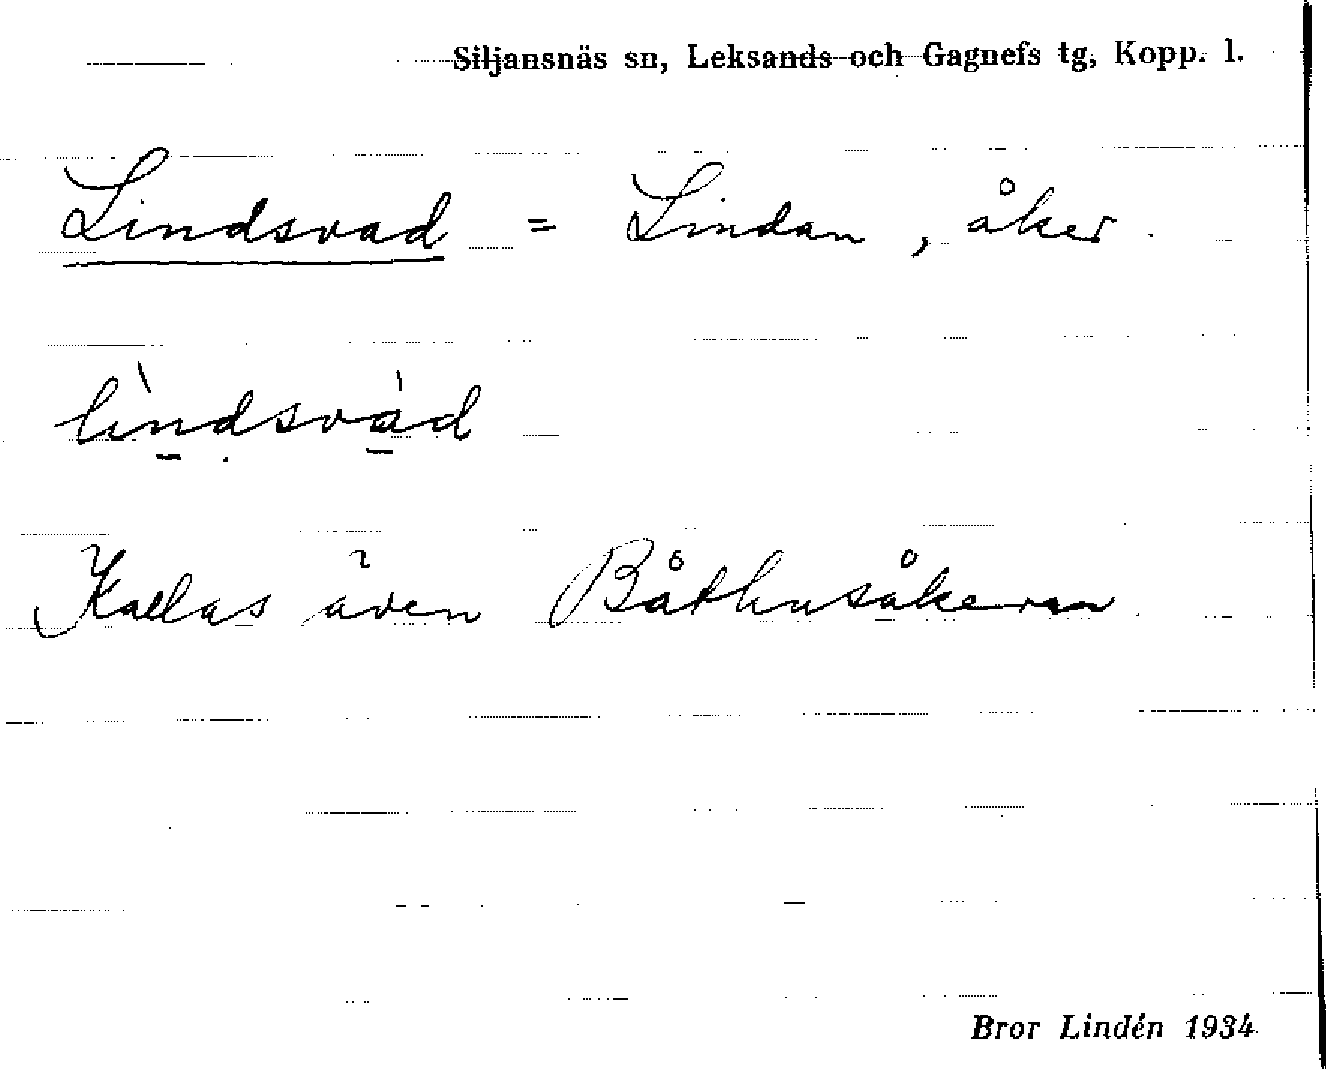 Siljansnäs sn, Leksands och Gagnefs tg, Kopp. l.
Lindsvad = Lindan, åker.
lìndsvàd
Kallas även Båthusåkeren
Bror Lindén 1934